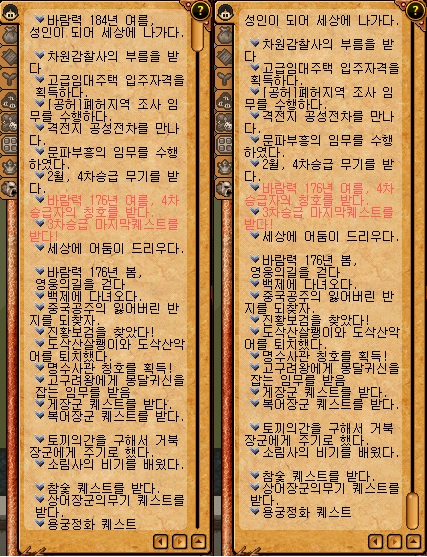 바람력 184년 여름,
성인이 되어 세상에 나가다.
차원감찰사의 부름을 받
다.
고급임대주택 입주자격을
획득하다.
[공허]폐허지역 조사 임
무를 수행하다.
격전지 공성전차를 만나
다.
문파부흥의 임무를 수행
하였다.
2월, 4차승급 무기를 받
다.
바람력 176년 여름, 4차
승급자의 칭호를 받다.
3차승급 마지막퀘스트를
받다!
세상에 어둠이 드리우다.
바람력 176년 봄,
영웅의길을 걷다
백제에 다녀오다.
중국공주의 잃어버린 반
지를 되찾자.
진황보검을 찾았다!
도삭산살쾡이와 도삭산악
어를 퇴치했다.
명수사관 칭호를 획득!
고구려왕에게 몽달귀신을
잡는 임무를 받음
게장군 퀘스트를 받다.
복어장군 퀘스트를 받다.
토끼의간을 구해서 거북
장군에게 주기로 했다.
소림사의 비기를 배웠다.
참숯 퀘스트를 받다.
상어장군의무기 퀘스트를
받다.
용궁정화 퀘스트
성인이 되어 세상에 나가다.
차원감찰사의 부름을 받
다.
고급임대주택 입주자격을
획득하다.
[공허]폐허지역 조사 임
무를 수행하다.
격전지 공성전차를 만나
다.
문파부흥의 임무를 수행
하였다.
2월, 4차승급 무기를 받
다.
바람력 176년 여름, 4차
승급자의 칭호를 받다.
3차승급 마지막퀘스트를
받다!
세상에 어둠이 드리우다.
바람력 176년 봄,
영웅의길을 걷다
백제에 다녀오다.
중국공주의 잃어버린 반
지를 되찾자.
진황보검을 찾았다!
도삭산살쾡이와 도삭산악
어를 퇴치했다.
명수사관 칭호를 획득!
고구려왕에게 몽달귀신을
잡는 임무를 받음
게장군 퀘스트를 받다.
복어장군 퀘스트를 받다.
토끼의간을 구해서 거북
장군에게 주기로 했다.
소림사의 비기를 배웠다.
참숯 퀘스트를 받다.
상어장군의무기 퀘스트를
받다.
용궁정화 퀘스트